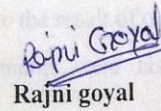 Rajni Goyal
Rajni goyal